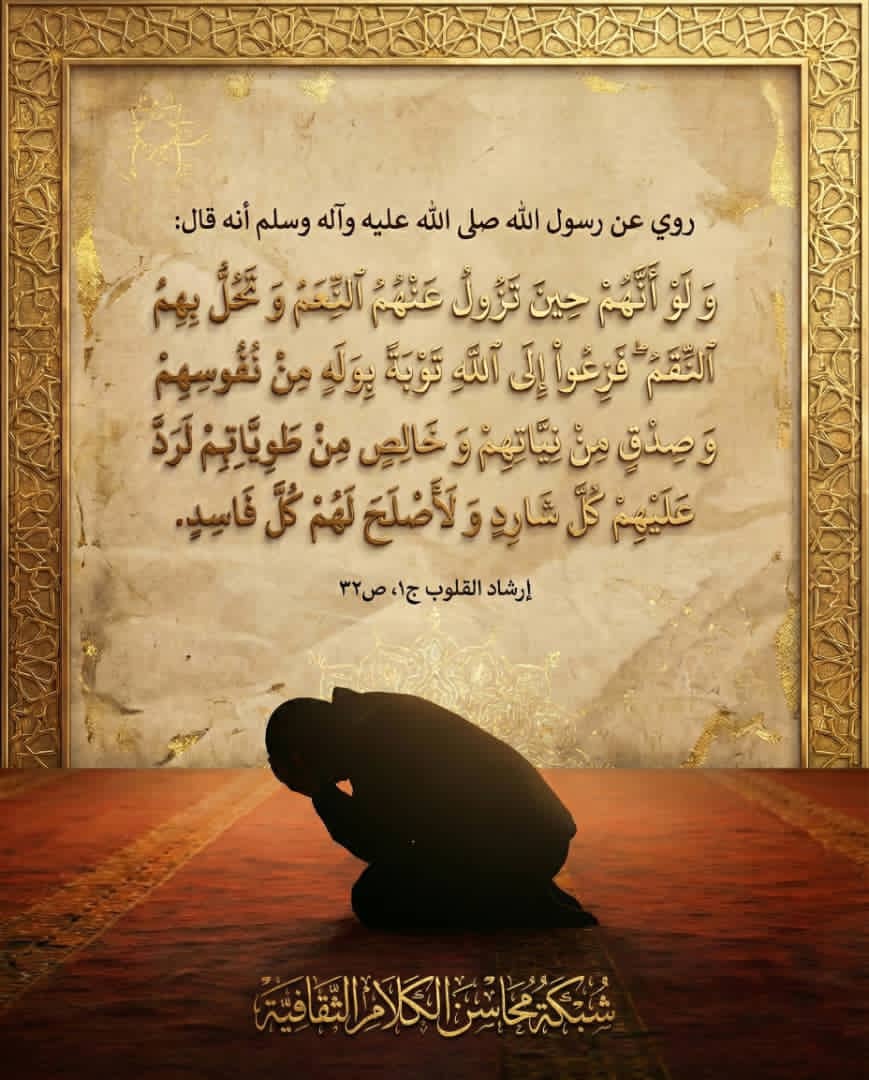 روي عن رسول الله صلى الله عليه وآله وسلم أنه قال:
وَ لَوْ أَنَّهُمْ حِينَ تَزُولُ عَنْهُمُ ٱلنِّعَمُ وَ تَحُلُّ بِهِمُ
ٱلنِّقَمُ ۖ فَزِعُواْ إِلَى ٱللَّهِ تَوْبَةً بِوَلَهٍ مِنْ نُفُوسِهِمْ
وَ صِدْقٍ مِنْ نِيَّاتِهِمْ وَ خَالِصٍ مِنْ طَوِيَّاتِهِمْ لَرَدَّ
عَلَيْهِمْ كُلَّ شَارِدٍ وَ لَأَصْلَحَ لَهُمْ كُلَّ فَاسِدٍ.
إرشاد القلوب ج١، ص٣٢
شَبَكَةُ مَحَاسِنِ الْكَلَامِ الثَّقَافِيَّةِ